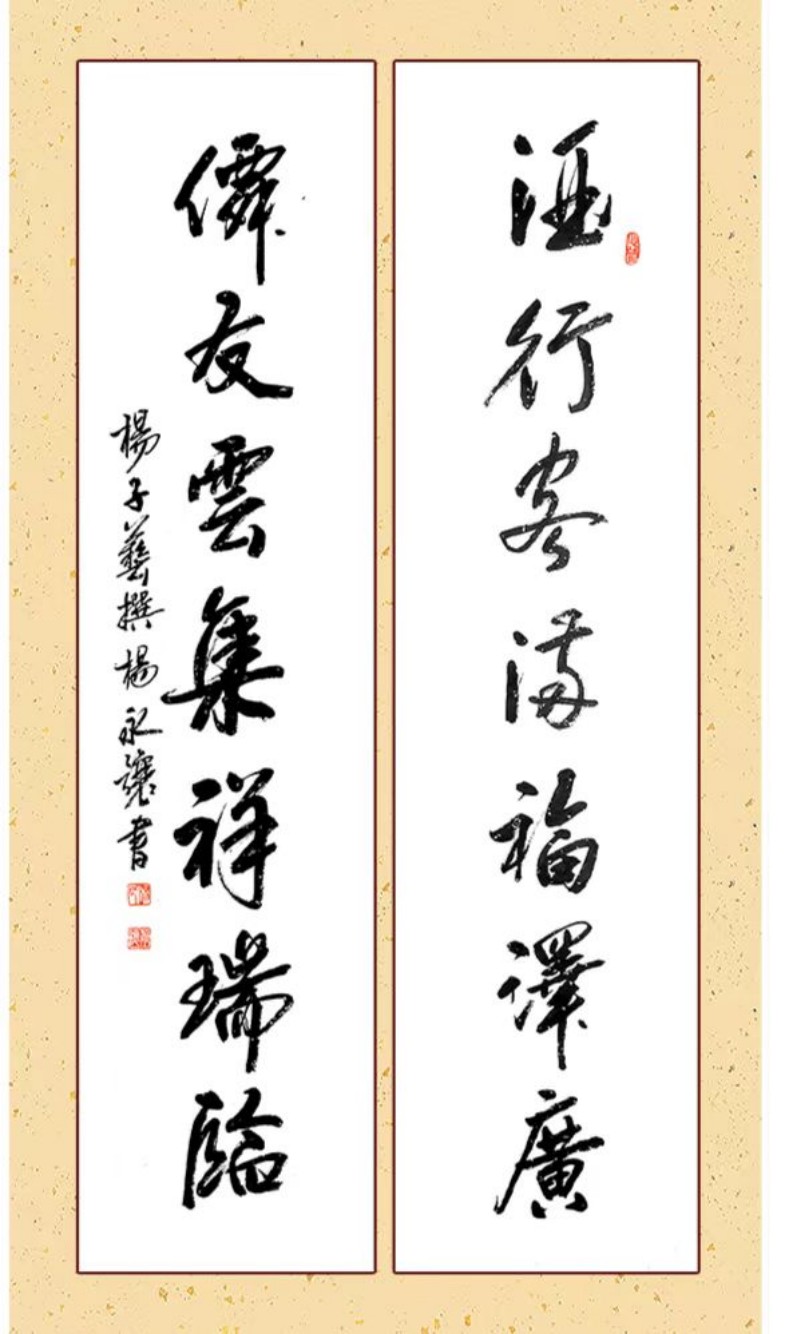 酒行客滿福澤廣
僊友雲集祥瑞臨
楊子藝撰楊永讓書